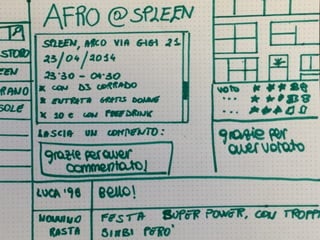 AFRO @ SPLEEN
SPLEEN, ARCO VIA GIGI 21
23/04/2014
23:30 - 04:30
* CON DJ CORRADO
* ENTRATA GRATIS DONNE
* 10 € CON FREEDRINK
LASCIA UN COMMENTO:
grazie per aver
commentato!
LUCA '90
Bello!
NONNINO
RASTA
FESTA SUPER POWER, CON TROPPI
BIMBI PERO'
STORO
EEN
RANO
SOLE
voto
...
...
grazie per
aver votato